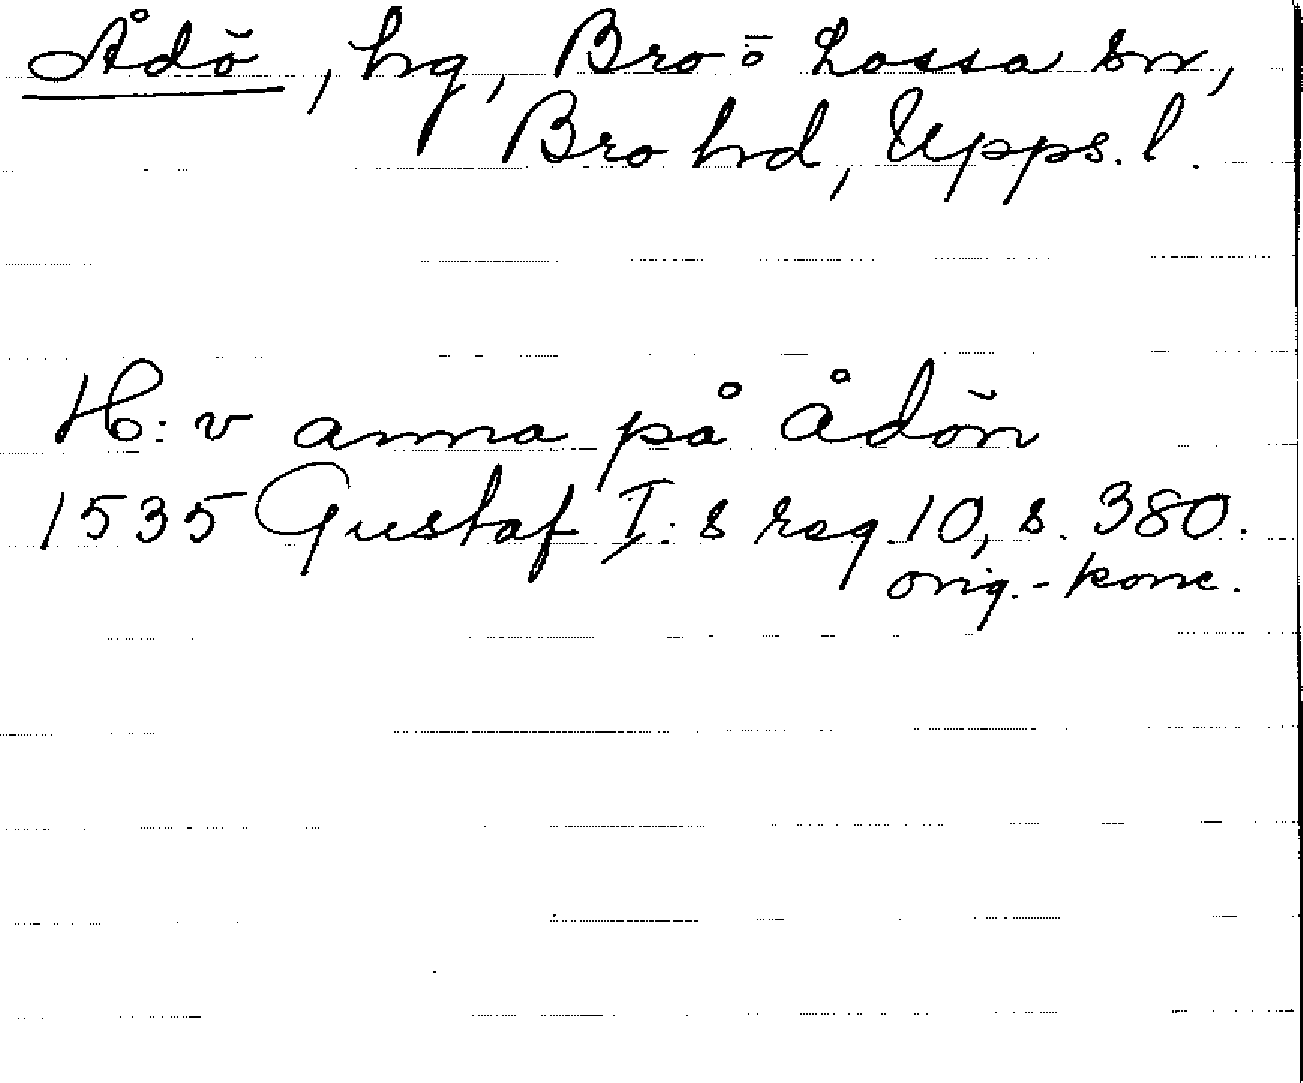 Ådö, hg, Bro o Lossa sn,
Bro hd, Upps. l.
H:v anna på ådön
1535 Gustaf I:s reg 10, s. 380.
orig.-konc.